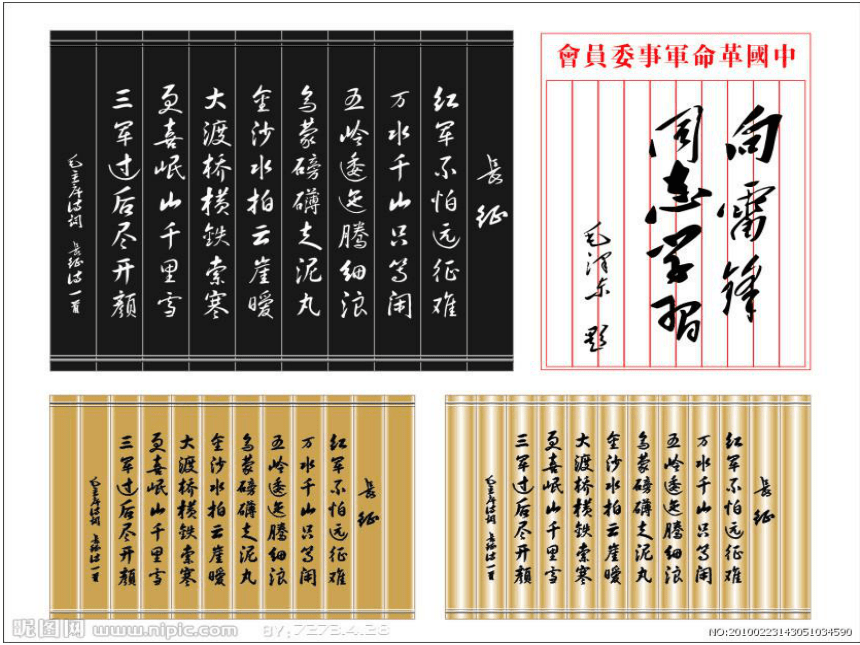 长征
红军不怕远征难
万水千山只等闲
五岭逶迤腾细浪
乌蒙磅礴走泥丸
金沙水拍云崖暖
大渡桥横铁索寒
更喜岷山千里雪
三军过后尽开颜
毛主席诗词 长征诗一首
中國革命軍事委員會
向雷锋
同志学习
毛泽东 题
长征
红军不怕远征难
万水千山只等闲
五岭逶迤腾细浪
乌蒙磅礴走泥丸
金沙水拍云崖暖
大渡桥横铁索寒
更喜岷山千里雪
三军过后尽开颜
毛主席诗词 长征诗一首
长征
红军不怕远征难
万水千山只等闲
五岭逶迤腾细浪
乌蒙磅礴走泥丸
金沙水拍云崖暖
大渡桥横铁索寒
更喜岷山千里雪
三军过后尽开颜
毛主席诗词 长征诗一首
昵图网 www.nipic.com BY:7273.4.28
NO:20100223143051034590